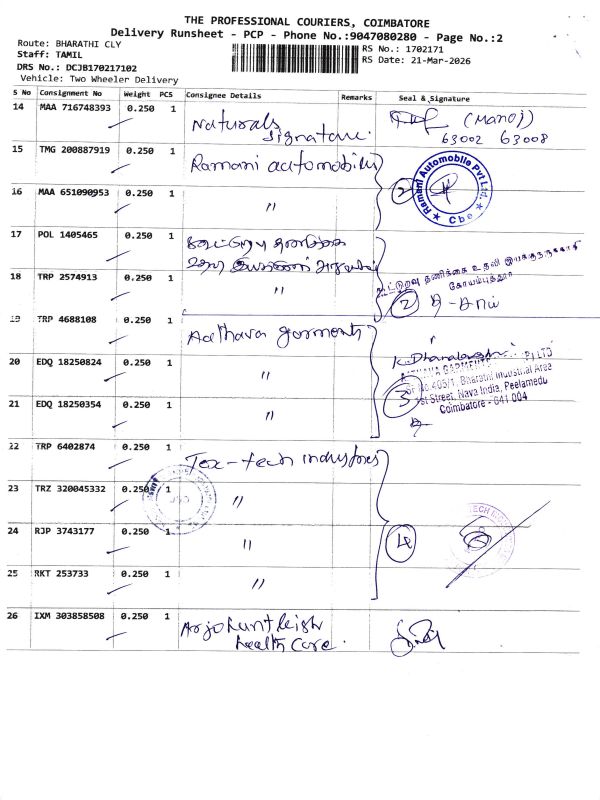 THE PROFESSIONAL COURIERS, COIMBATORE
Delivery Runsheet - PCP - Phone No.:9047080280 - Page No.:2
Route: BHARATHI CLY
Staff: TAMIL
DRS No.: DCJB170217102
Vehicle: Two Wheeler Delivery
RS No.: 1702171
RS Date: 21-Mar-2026
S No Consignment No Weight PCS Consignee Details Remarks Seal & Signature
14 MAA 716748393 0.250 1 Naturals Signature. (Manoj)
63002 63008
15 TMG 200887919 0.250 1 Ramani automobiles
16 MAA 651090953 0.250 1 " 2
Ramani Automobile Pvt Ltd.
Cbe
17 POL 1405465 0.250 1 கூட்டுறவு தணிக்கை
உதவி இயக்குனர் அலுவலகம்
18 TRP 2574913 0.250 1 " 2
கூட்டுறவு தணிக்கை உதவி
கோயம்புத்தூர்
19 TRP 4688108 0.250 1 Aathava garments
20 EDQ 18250824 0.250 1 "
21 EDQ 18250354 0.250 1 " 3
GARMENTS P) LTD
405/1, Bharathi Industrial Area
1st Street, Nava India, Peelamedu
Coimbatore - 641 004
22 TRP 6402874 0.250 1 Tex-tech industries
23 TRZ 320045332 0.250 1 "
24 RJP 3743177 0.250 1 " 4
25 RKT 253733 0.250 1 "
26 IXM 303858508 0.250 1 Arjo hunt leigh
health care.